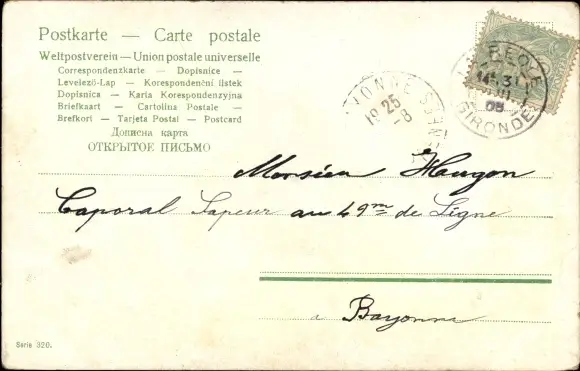 Postkarte — Carte postale
Weltpostverein — Union postale universelle
Correspondenzkarte — Dopisnice —
Levelező-Lap — Korespondenční lístek
Dopisnica — Karta Korespondenzyjna
Briefkaart — Cartolina Postale —
Brefkort — Tarjeta Postal — Postcard
Дописна карта
ОТКРЫТОЕ ПИСЬМО
GIRONDE
05
25
-8
Monsieu Haugon
Caporal Sapeur au 49me de Ligne
a Bayonne
Serie 320.